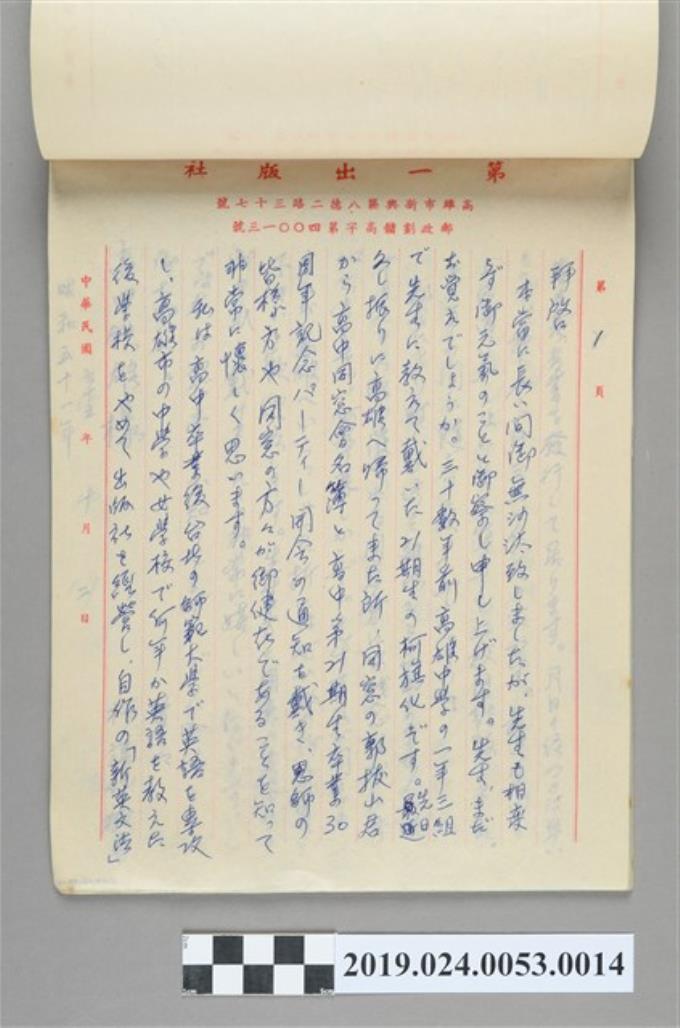 第一出版社
高雄市新興區八德二路三十七號
郵政劃儲高字第四〇〇一三號
第 1 頁
拜啓
本当に長い間御無沙汰致しましたが、先生も相変
らず御元気のことと御察し申し上げます。先生、まだ
お覚えでしょうか。三十数年前高雄中学の一年三組
で先生に教えて戴いた21期生の柯旗化です。先日
久し振りに高雄へ帰ってきた所、同窓の郭拔山君
から高中同窓會名簿と高中第21期生卒業30
周年記念パーティー開会の通知を戴き、恩師の
皆様方や同窓の方々が御健在であることを知って
非常に懐しく思います。
私は高中卒業後台北の師範大學で英語を專攻
し、高雄市の中学や女学校で何年か英語を教えた
後学校をやめて出版社を經營し、自作の「新英文法」
中華民國 年 十月 二日
2019.024.0053.0014